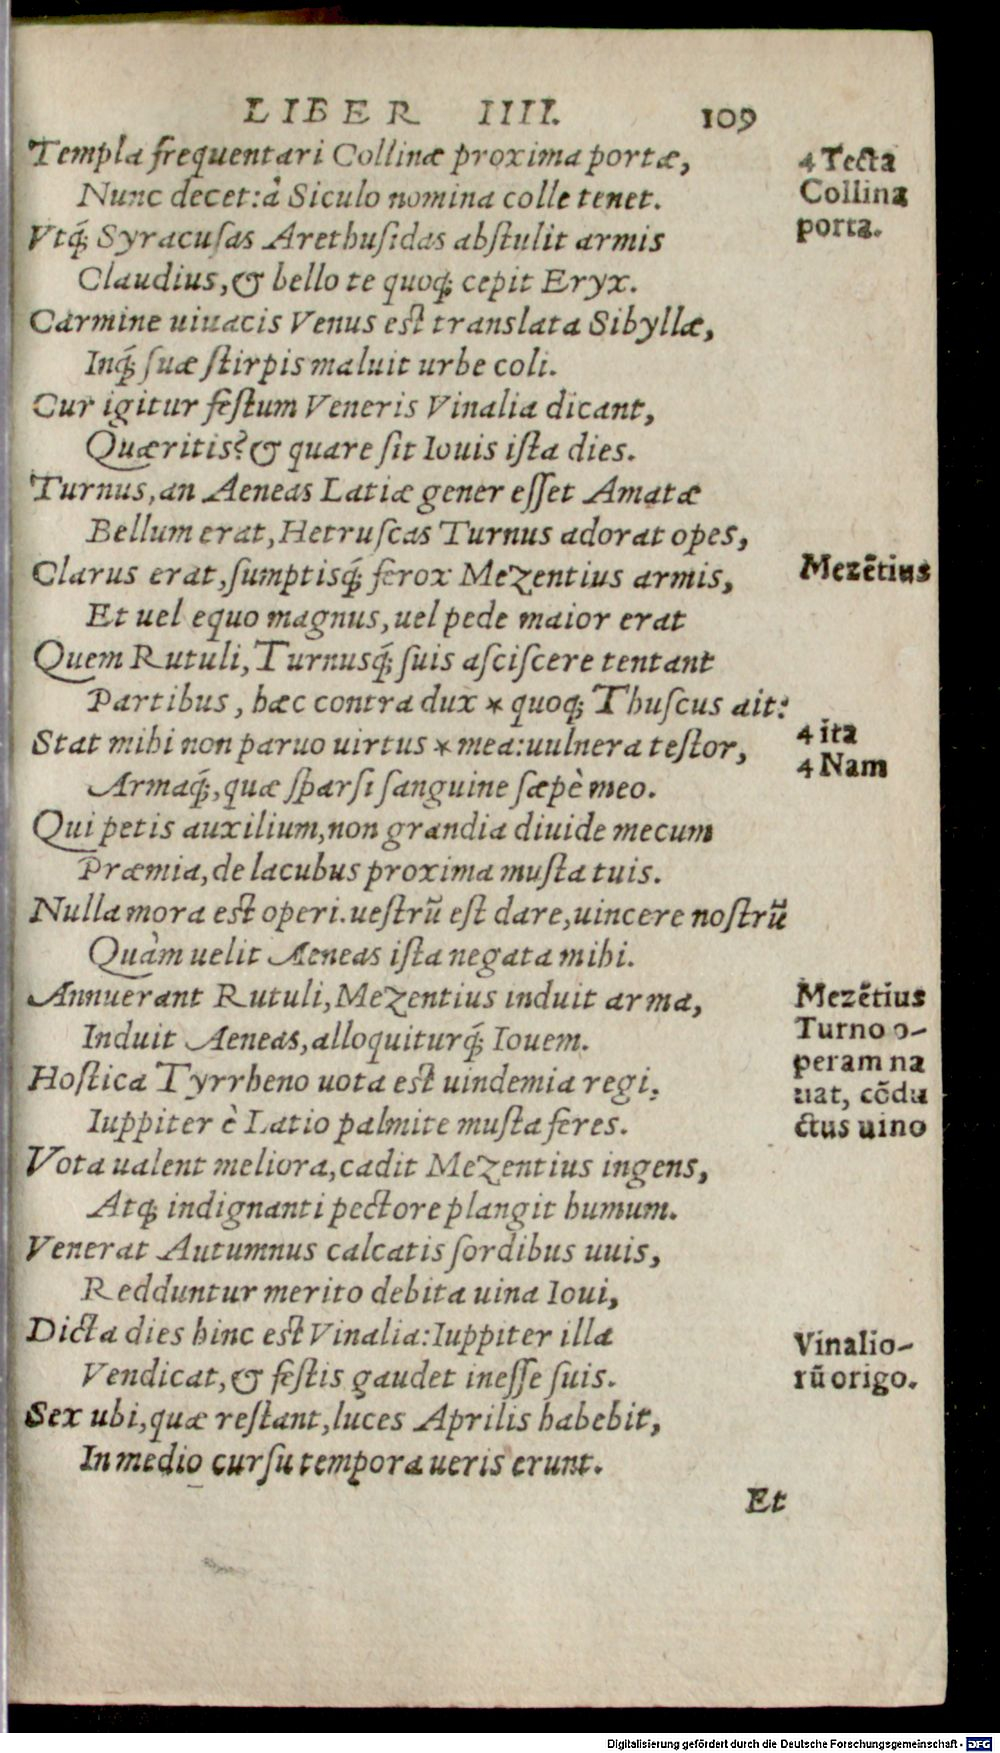 LIBER IIII. 109
Templa frequentari Collinæ proxima portæ,
Nunc decet: à Siculo nomina colle tenet.
Vtq́; Syracusas Arethusidas abstulit armis
Claudius, & bello te quoq; cepit Eryx.
Carmine uiuacis Venus est translata Sibyllæ,
Inq́; suæ stirpis maluit urbe coli.
Cur igitur festum Veneris Vinalia dicant,
Quæritis? & quare sit Iouis ista dies.
Turnus, an Aeneas Latiæ gener esset Amatæ
Bellum erat, Hetruscas Turnus adorat opes,
Clarus erat, sumptisq́; ferox Mezentius armis,
Et uel equo magnus, uel pede maior erat
Quem Rutuli, Turnusq́; suis asciscere tentant
Partibus, hæc contra dux * quoq; Thuscus ait:
Stat mihi non paruo uirtus * mea: uulnera testor,
Armaq́;, quæ sparsi sanguine sæpè meo.
Qui petis auxilium, non grandia diuide mecum
Præmia, de lacubus proxima musta tuis.
Nulla mora est operi. uestrũ est dare, uincere nostrũ
Quàm uelit Aeneas ista negata mihi.
Annuerant Rutuli, Mezentius induit arma,
Induit Aeneas, alloquiturq́; Iouem.
Hostica Tyrrheno uota est uindemia regi;
Iuppiter è Latio palmite musta feres.
Vota ualent meliora, cadit Mezentius ingens,
Atq; indignanti pectore plangit humum.
Venerat Autumnus calcatis sordibus uuis,
Redduntur merito debita uina Ioui,
Dicta dies hinc est Vinalia: Iuppiter illa
Vendicat, & festis gaudet inesse suis.
Sex ubi, quæ restant, luces Aprilis habebit,
In medio cursu tempora ueris erunt.
Et
4 Tecta
Collina
porta.
Mezẽtius
4 ita
4 Nam
Mezẽtius
Turno o-
peram na
uat, cõdu
ctus uino
Vinalio-
rũ origo.
Digitalisierung gefördert durch die Deutsche Forschungsgemeinschaft - DFG